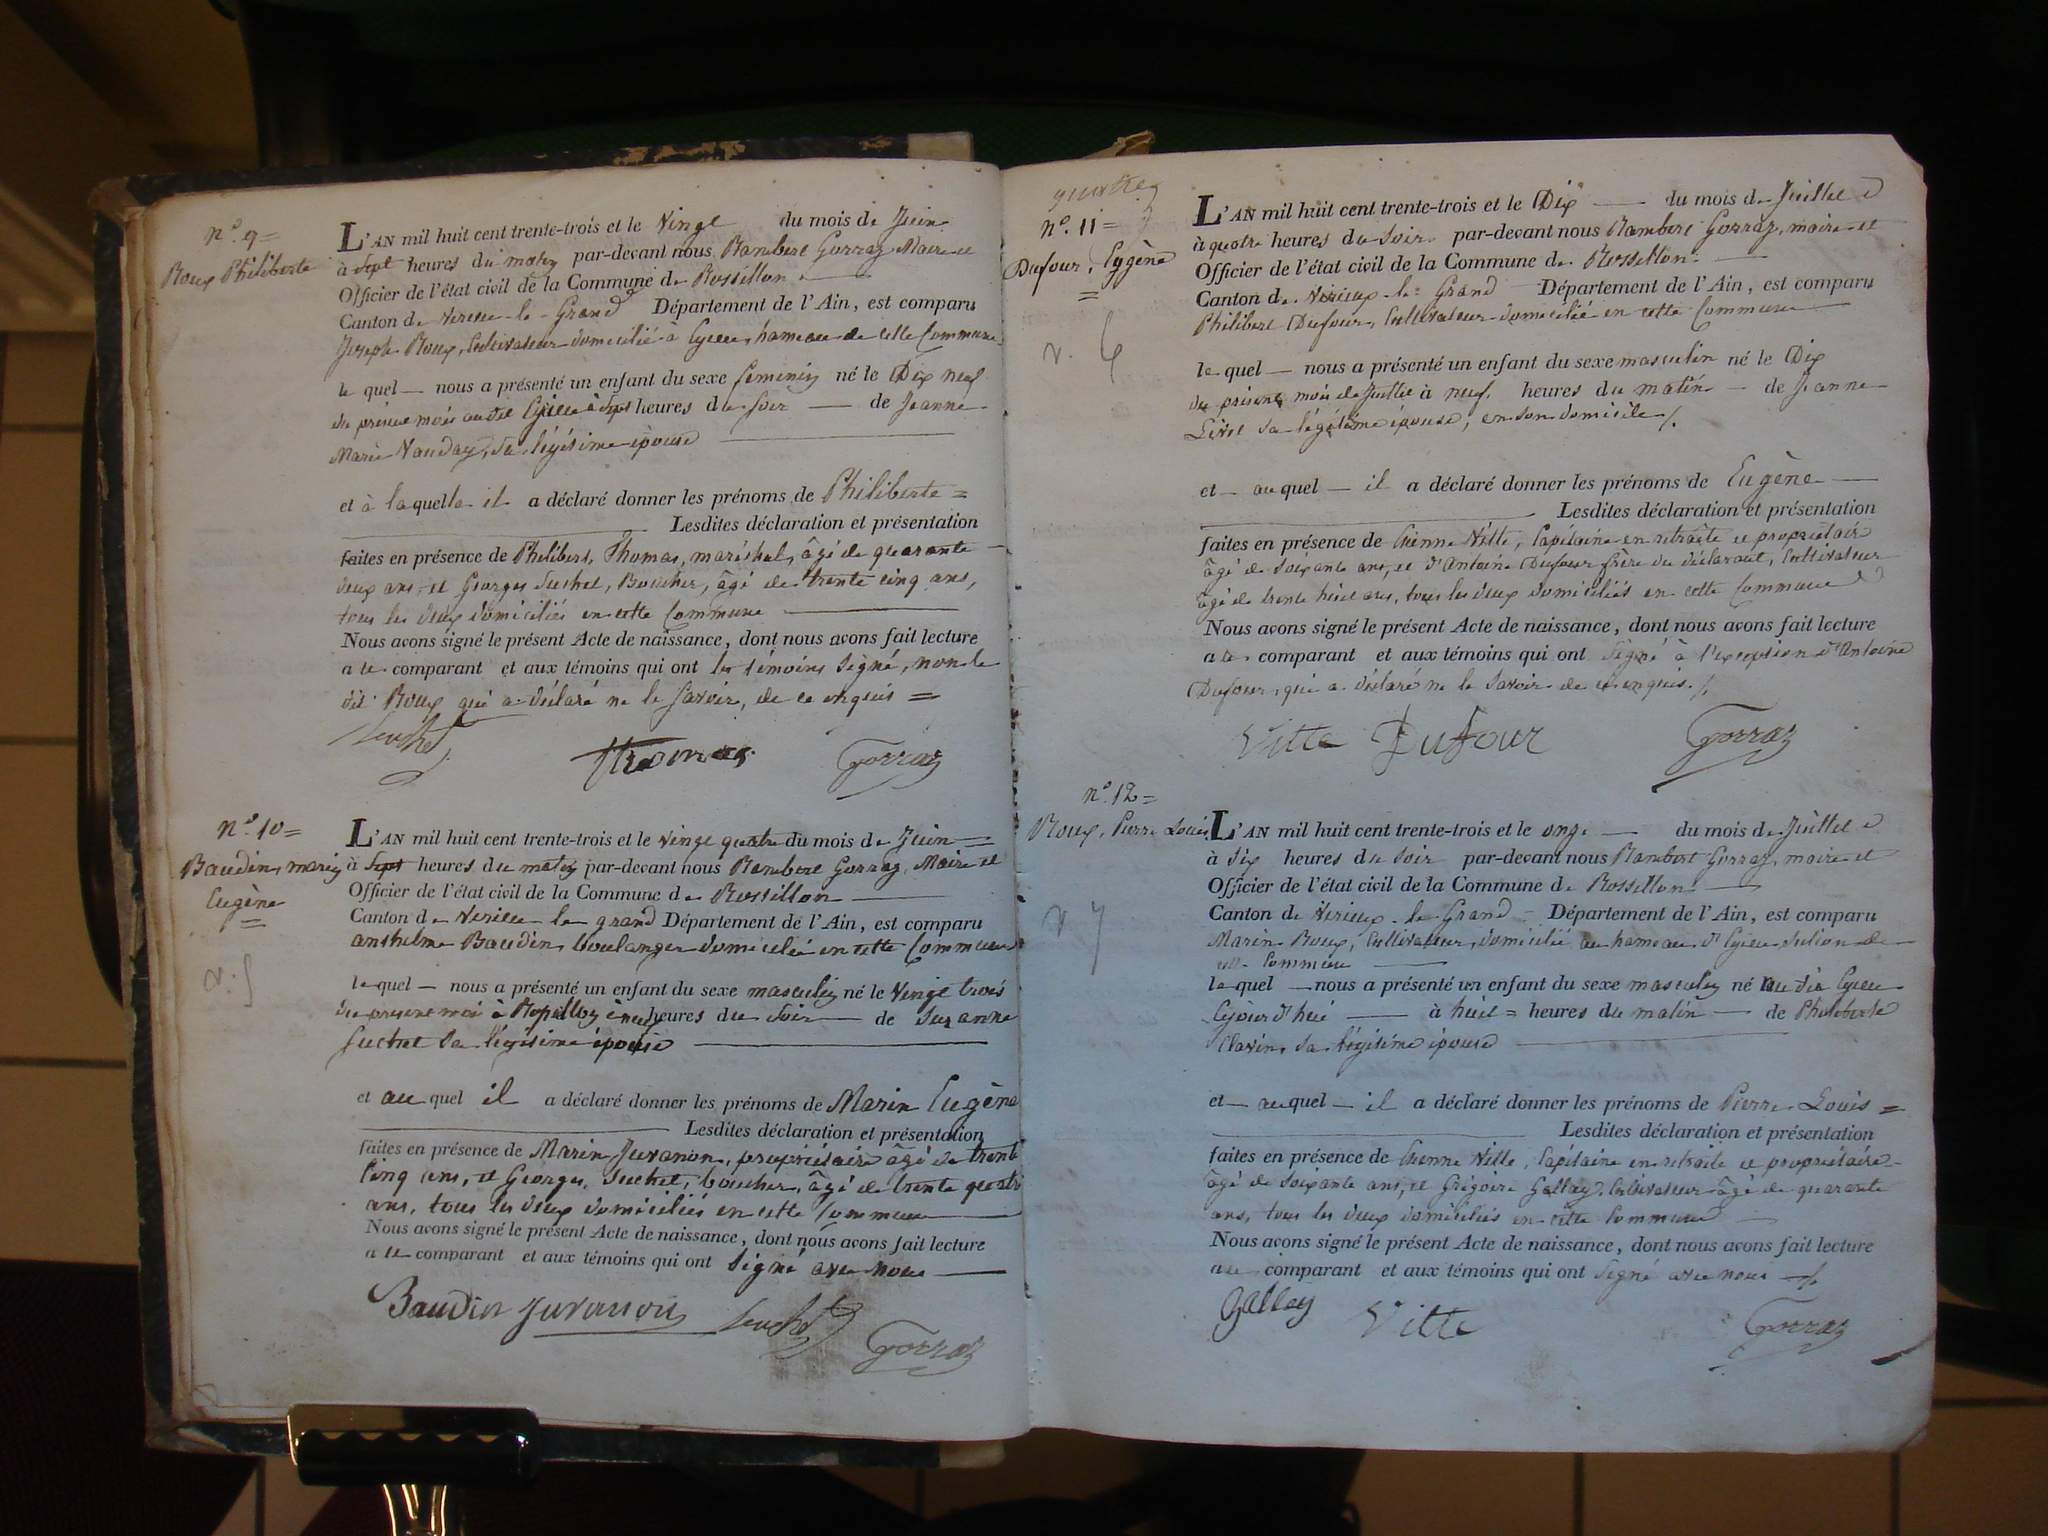 n.° 9 =
Roux Philiberte
L'AN mil huit cent trente-trois et le vingt du mois de Juin
à sept heures du matin par-devant nous Rambert Gorraz Maire et
Officier de l'état civil de la Commune de Rossillon
Canton de Virieu-le-Grand Département de l'Ain, est comparu
Joseph Roux, Cultivateur domicilié à Egieu, hameau de cette Commune
le quel — nous a présenté un enfant du sexe feminin né le Dix neuf
du présent mois audit Egieu à sept heures du soir — de Jeanne
Marie Vauday, sa légitime épouse
et à laquelle il a déclaré donner les prénoms de Philiberte =
Lesdites déclaration et présentation
faites en présence de Philibert Thomas, maréchal, âgé de quarante
deux ans, et Georges Suchet, Boucher, âgé de trente cinq ans,
tous les deux domiciliés en cette Commune
Nous avons signé le présent Acte de naissance, dont nous avons fait lecture
a le comparant et aux témoins qui ont les témoins signé, non le
dit Roux qui a déclaré ne le savoir, de ce enquis =
Suchet Thomas Gorraz
n.° 10 =
Baudin, marin
Eugène
=
v. 5
L'AN mil huit cent trente-trois et le vingt quatre du mois de Juin
à sept heures du matin par-devant nous Rambert Gorraz, Maire et
Officier de l'état civil de la Commune de Rossillon
Canton de Virieu le grand Département de l'Ain, est comparu
anthelme Baudin, boulanger domicilié en cette Commune
le quel — nous a présenté un enfant du sexe masculin né le vingt trois
du present moi à Rossillon à neuf heures du soir — de Suzanne
Suchet sa légitime épouse
et au quel il a déclaré donner les prénoms de Marin Eugène
Lesdites déclaration et présentation
faites en présence de Marin Juvanon, propriétaire âgé de trente
cinq ans, et Georges Suchet, boucher, âgé de trente quatre
ans, tous les deux domiciliés en cette Commune
Nous avons signé le présent Acte de naissance, dont nous avons fait lecture
a le comparant et aux témoins qui ont signé avec nous
Baudin Juvanon Suchet Gorraz
n.° 11 =
Dufour, Eygène
=
v. 6
L'AN mil huit cent trente-trois et le Dix — du mois de Juillet
à quatre heures du soir par-devant nous Rambert Gorraz, maire et
Officier de l'état civil de la Commune de Rossillon
Canton de Virieux-le-Grand Département de l'Ain, est comparu
Philibert Dufour, Cultivateur domicilié en cette Commune
le quel — nous a présenté un enfant du sexe masculin né le Dix
du présent mois de Juillet à neuf heures du matin — de Jeanne
sa légitime épouse, en son domicile /.
et — au quel — il a déclaré donner les prénoms de Eugène —
Lesdites déclaration et présentation
faites en présence de Etienne Vitte, Capitaine en retraite et propriétaire
âgé de soixante ans, et d'Antoine Dufour frère du déclarant, Cultivateur
âgé de trente huit ans, tous les deux domiciliés en cette Commune
Nous avons signé le présent Acte de naissance, dont nous avons fait lecture
a le comparant et aux témoins qui ont signé à l'exception d'Antoine
Dufour, qui a déclaré ne le savoir de ce enquis. /.
Vitte Dufour Gorraz
n.° 12 =
Roux, Pierre Louis
v. 7
L'AN mil huit cent trente-trois et le onze — du mois de Juillet
à six heures du soir par-devant nous Rambert Gorraz, maire et
Officier de l'état civil de la Commune de Rossillon
Canton de Virieux-le-Grand Département de l'Ain, est comparu
Marin Roux, Cultivateur, domicilié au hameau d'Egieu section de
cette Commune
le quel — nous a présenté un enfant du sexe masculin né au dit Egieu
cejour d'hui — à huit = heures du matin — de Philiberte
Clavin, sa légitime épouse
et — au quel — il a déclaré donner les prénoms de Pierre Louis =
Lesdites déclaration et présentation
faites en présence de Etienne Vitte, Capitaine en retraite et propriétaire
âgé de soixante ans, et Grégoire Gallay, Cultivateur âgé de quarante
ans, tous les deux domiciliés en cette Commune
Nous avons signé le présent Acte de naissance, dont nous avons fait lecture
au comparant et aux témoins qui ont signé avec nous
Gallay Vitte Gorraz